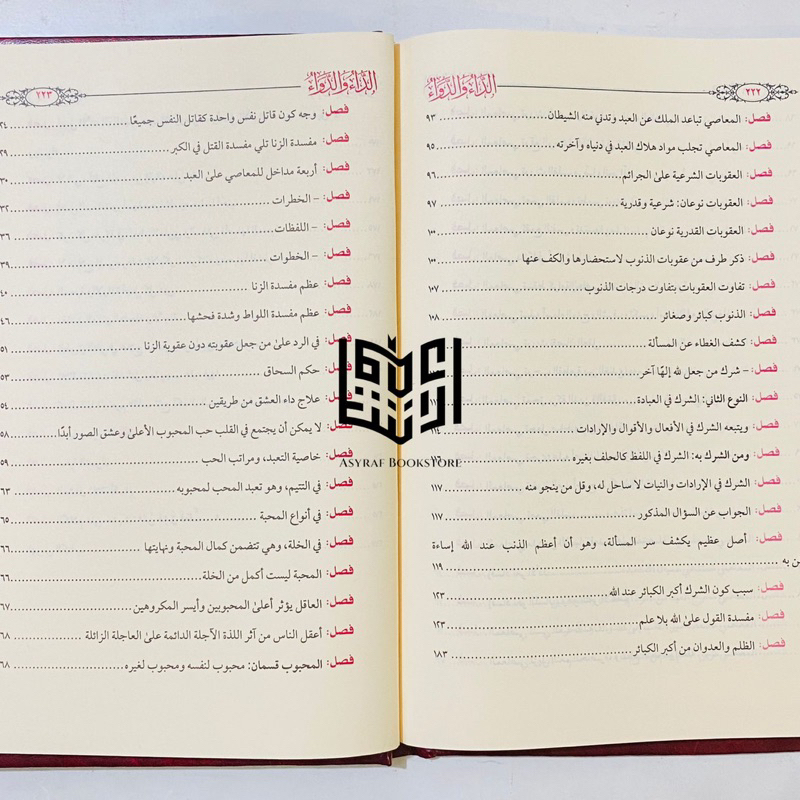 الدَّاءُ وَالدَّوَاءُ
٢٢٢
فصل: المعاصي تباعد الملك عن العبد وتدني منه الشيطان ٩٣
فصل: المعاصي تجلب مواد هلاك العبد في دنياه وآخرته ٩٥
فصل: العقوبات الشرعية على الجرائم ٩٦
فصل: العقوبات نوعان: شرعية وقدرية ٩٧
فصل: العقوبات القدرية نوعان ١٠٠
فصل: ذكر طرف من عقوبات الذنوب لاستحضارها والكف عنها ١٠٠
فصل: تفاوت العقوبات بتفاوت درجات الذنوب ١٠٧
فصل: الذنوب كبائر وصغائر ١٠٨
فصل: كشف الغطاء عن المسألة
فصل: – شرك من جعل لله إلهًا آخر
فصل: النوع الثاني: الشرك في العبادة
فصل: ويتبعه الشرك في الأفعال والأقوال والإرادات ١١٤
فصل: ومن الشرك به: الشرك في اللفظ كالحلف بغيره
فصل: الشرك في الإرادات والنيات لا ساحل له، وقل من ينجو منه ١١٧
فصل: الجواب عن السؤال المذكور ١١٧
فصل: أصل عظيم يكشف سر المسألة، وهو أن أعظم الذنب عند الله إساءة
ن به ١١٩
فصل: سبب كون الشرك أكبر الكبائر عند الله ١٢٣
فصل: مفسدة القول على الله بلا علم ١٢٣
فصل: الظلم والعدوان من أكبر الكبائر ١٨٣
الدَّاءُ وَالدَّوَاءُ
٢٢٣
فصل: وجه كون قاتل نفس واحدة كقاتل النفس جميعًا ٢٤
فصل: مفسدة الزنا تلي مفسدة القتل في الكبر ٢٩
فصل: أربعة مداخل للمعاصي على العبد ٣٠
فصل: – الخطرات ٣٢
فصل: – اللفظات ٣٦
فصل: – الخطوات ٣٩
فصل: عظم مفسدة الزنا ٤٠
فصل: عظم مفسدة اللواط وشدة فحشها ٤٦
فصل: في الرد على من جعل عقوبته دون عقوبة الزنا ٥١
فصل: حكم السحاق ٥٣
فصل: علاج داء العشق من طريقين ٥٤
فصل: لا يمكن أن يجتمع في القلب حب المحبوب الأعلى وعشق الصور أبدًا ٥٨
فصل: خاصية التعبد، ومراتب الحب ٥٩
فصل: في التتيم، وهو تعبد المحب لمحبوبه ٦٣
فصل: في أنواع المحبة ٦٥
فصل: في الخلة، وهي تتضمن كمال المحبة ونهايتها ٦٦
فصل: المحبة ليست أكمل من الخلة ٦٦
فصل: العاقل يؤثر أعلى المحبوبين وأيسر المكروهين ٦٧
فصل: أعقل الناس من آثر اللذة الآجلة الدائمة على العاجلة الزائلة ٦٨
فصل: المحبوب قسمان: محبوب لنفسه ومحبوب لغيره ٦٨
ASYRAF BOOKSTORE